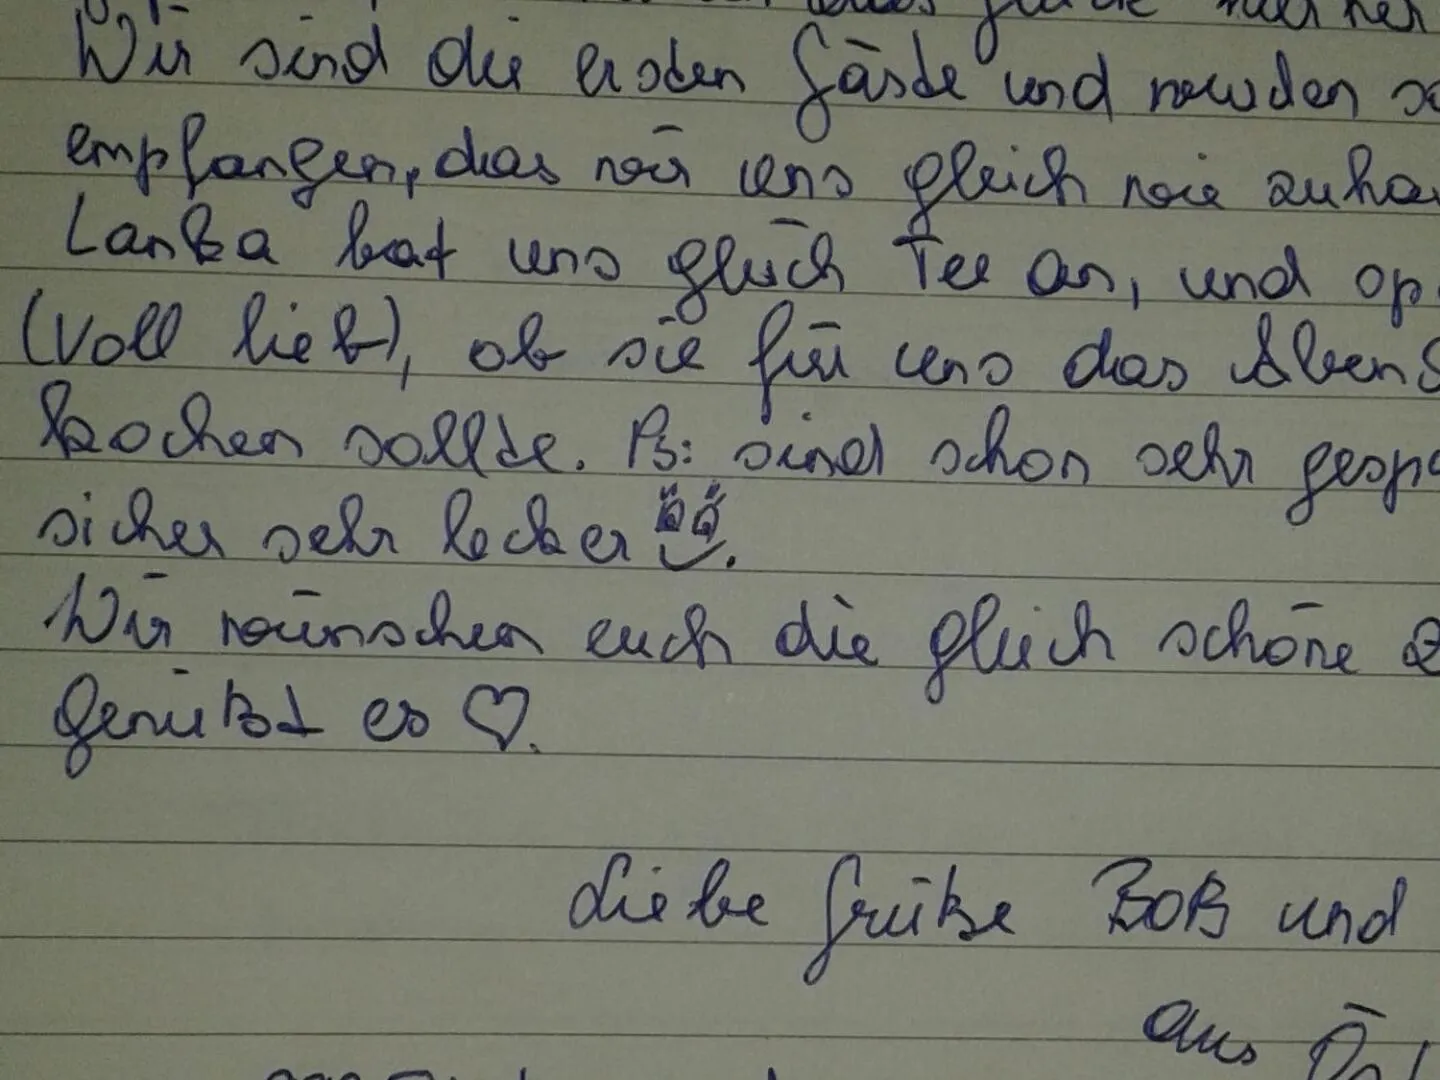 Wir sind die ersten Gäste und wurden so
empfangen, das wir uns gleich wie zuha
Lanka bat uns gleich Tee an, und op
(voll lieb), ob sie für uns das Abend
kochen sollte. Ps: sind schon sehr gesp
sicher sehr lecker.
Wir wünschen euch die gleich schöne Z
genießt es ♡.
Liebe Grüße BOB und
aus Ös